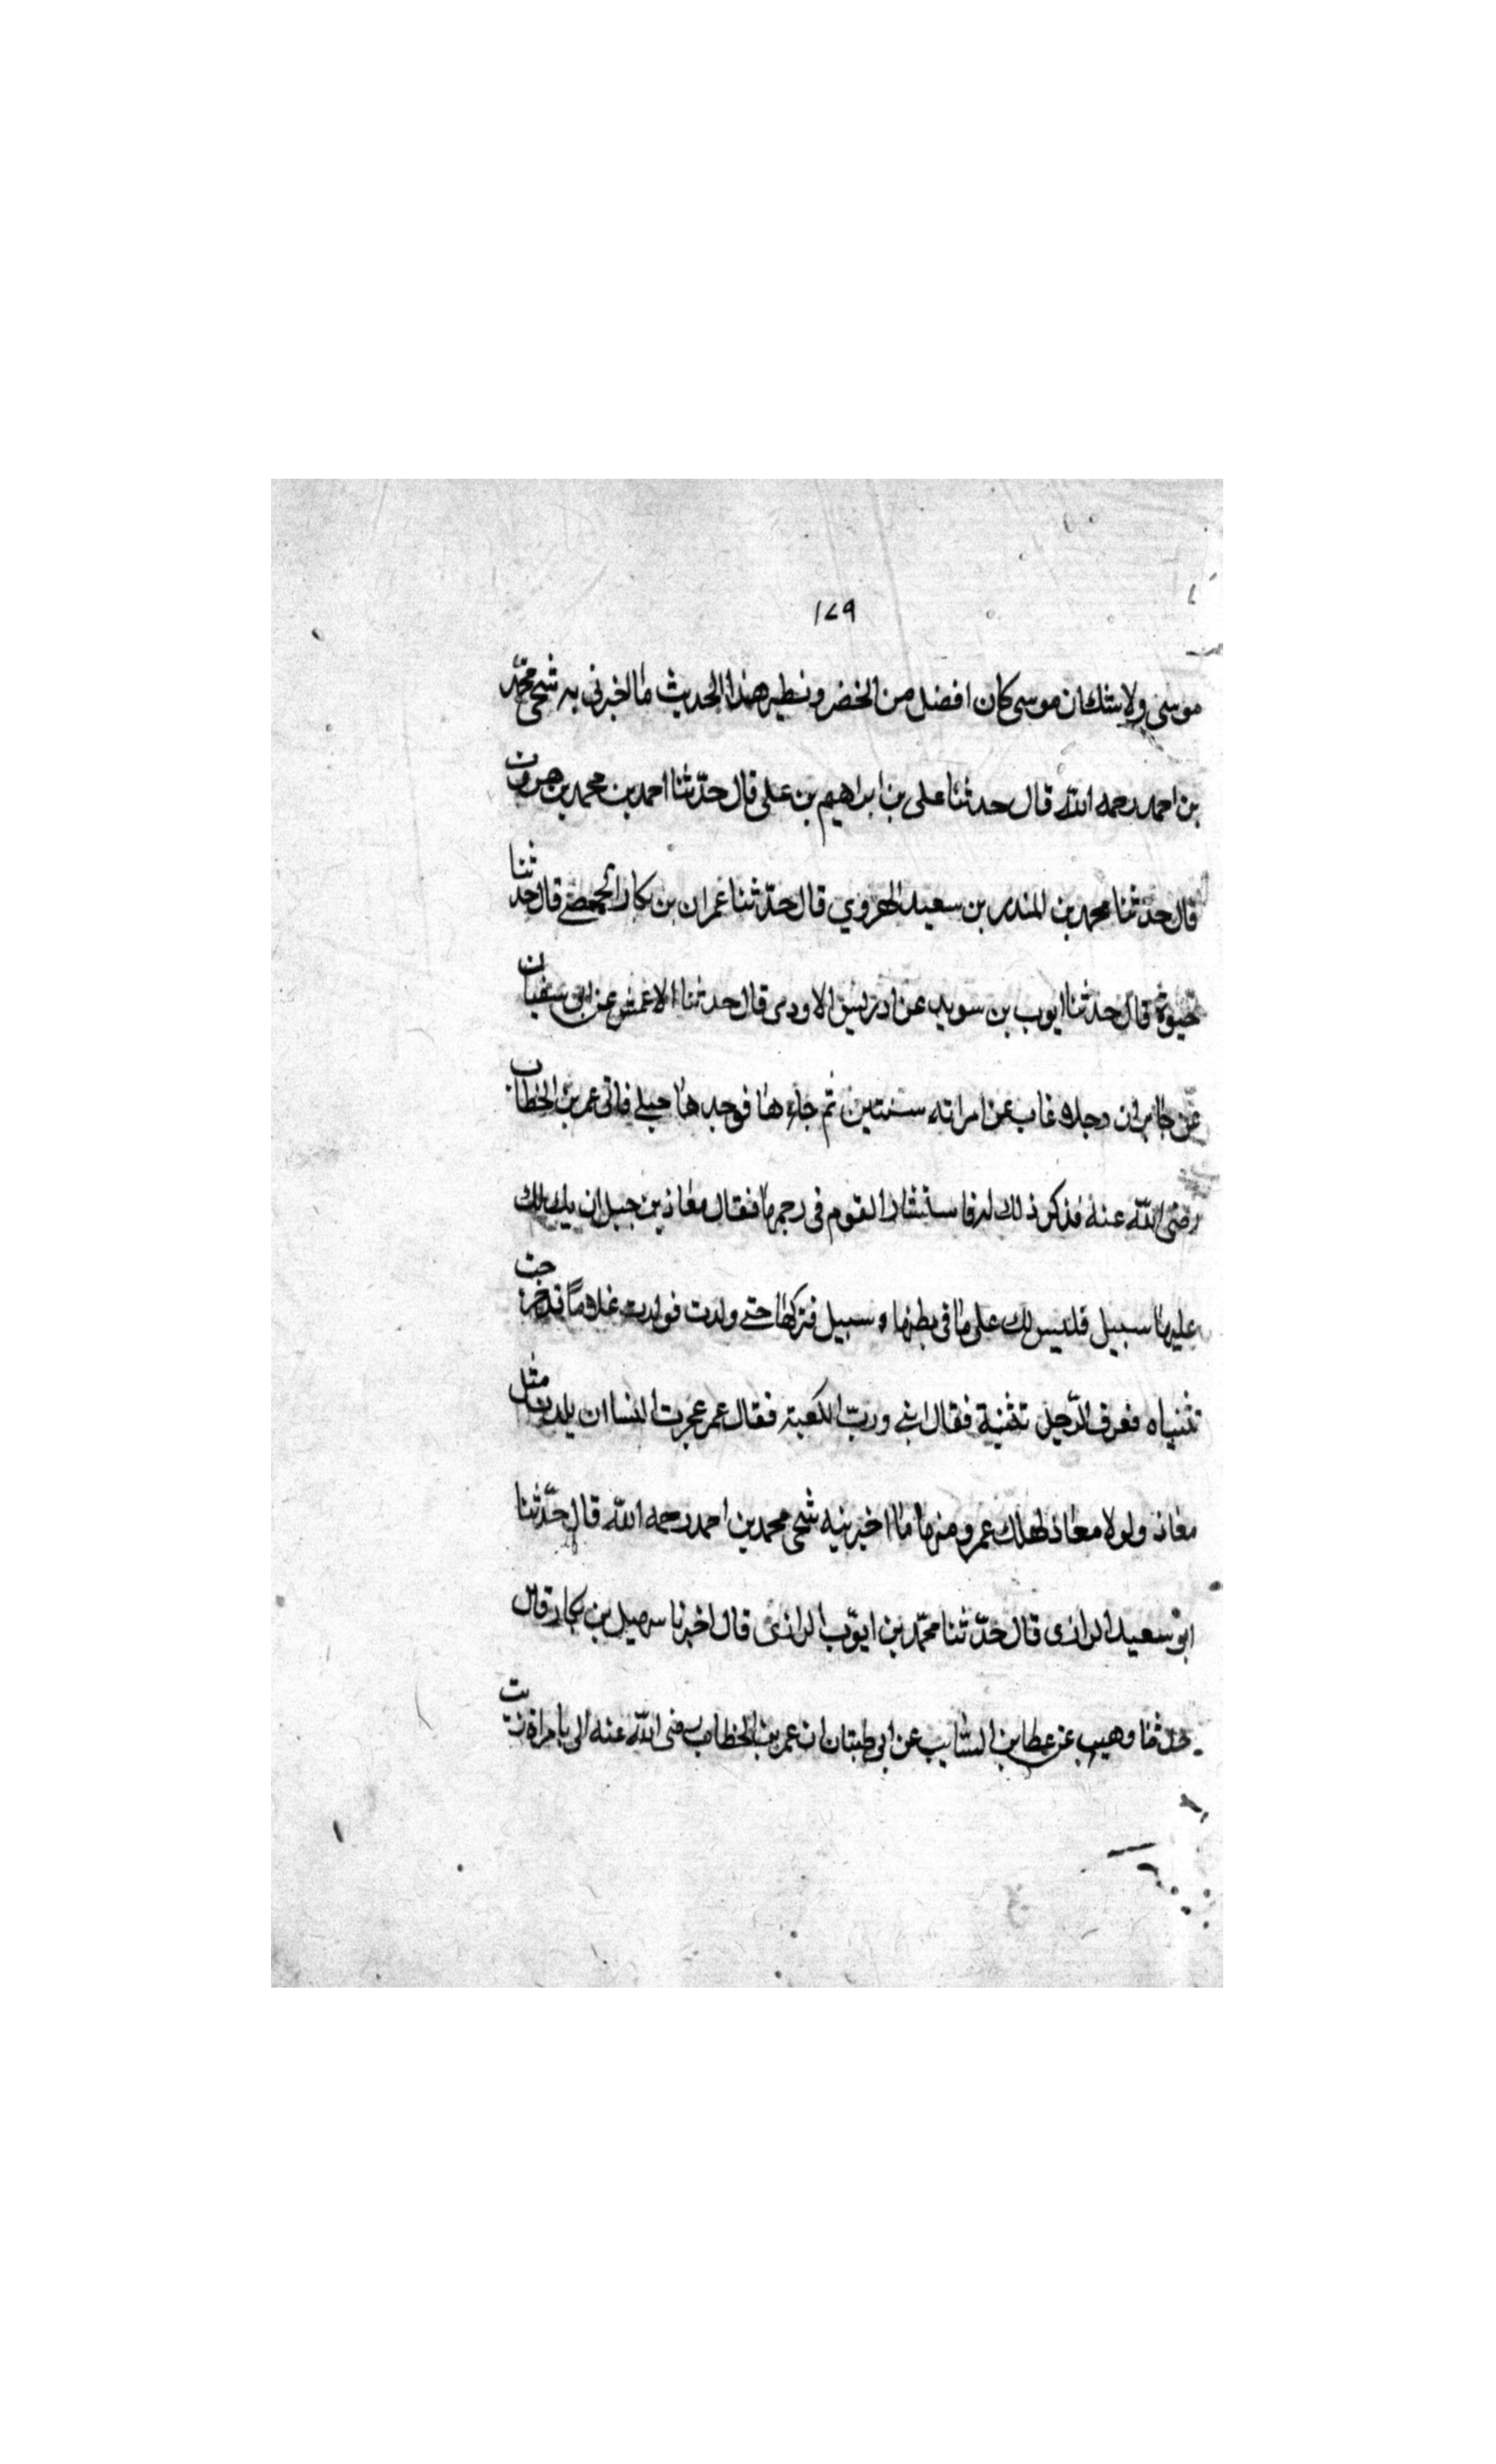 ١٧٩
موسى ولا شك ان موسى كان افضل من الخضر ونطير هذا الحديث ما اخبرني به شيخي محمّد
بن احمد رحمه الله قال حدثنا على بن ابراهيم بن على قال حدّثنا احمد بن محمد بن هرون
قال حدثنا محمد بن المنذر بن سعيد الهروي قال حدّثنا عمران بن بكار الحمصے قال حدثنا
حيوة قال حدثنا ايوب بن سويد عن ادريس الاودى قال حدثنا الاعمش عن ابى سفيان
عن جابر ان رجلا غاب عن امراته سنتين ثم جاءها فوجدها حبلے فاتى عمر بن الخطاب
رضى الله عنه فذكر ذلك له فاستشار القوم فى رجمها فقال معاذ بن جبل ان يك لك
عليها سبيل فليس لك على ما فى بطنها سبيل فتركها حتے ولدت فولدت غلاماً قد خرجت
ثنياه فعرف الرّجل فقال ابنے وربّ الكعبة فقال عمر عجزت النسا ان يلدن مثل
معاذ ولولا معاذ لهلك عمر ومنها ما اخبرنيه شيخى محمد بن احمد رحمه الله قال حدّثنا
ابو سعيد الرازى قال حدّثنا محمّد بن ايوّب الرازى قال اخبرنا سهيل بن بكار قال
حدثنا وهيب عن عطا بن السّايب عن ابى ان عمر بن الخطاب رضى الله عنه بامراة زنت